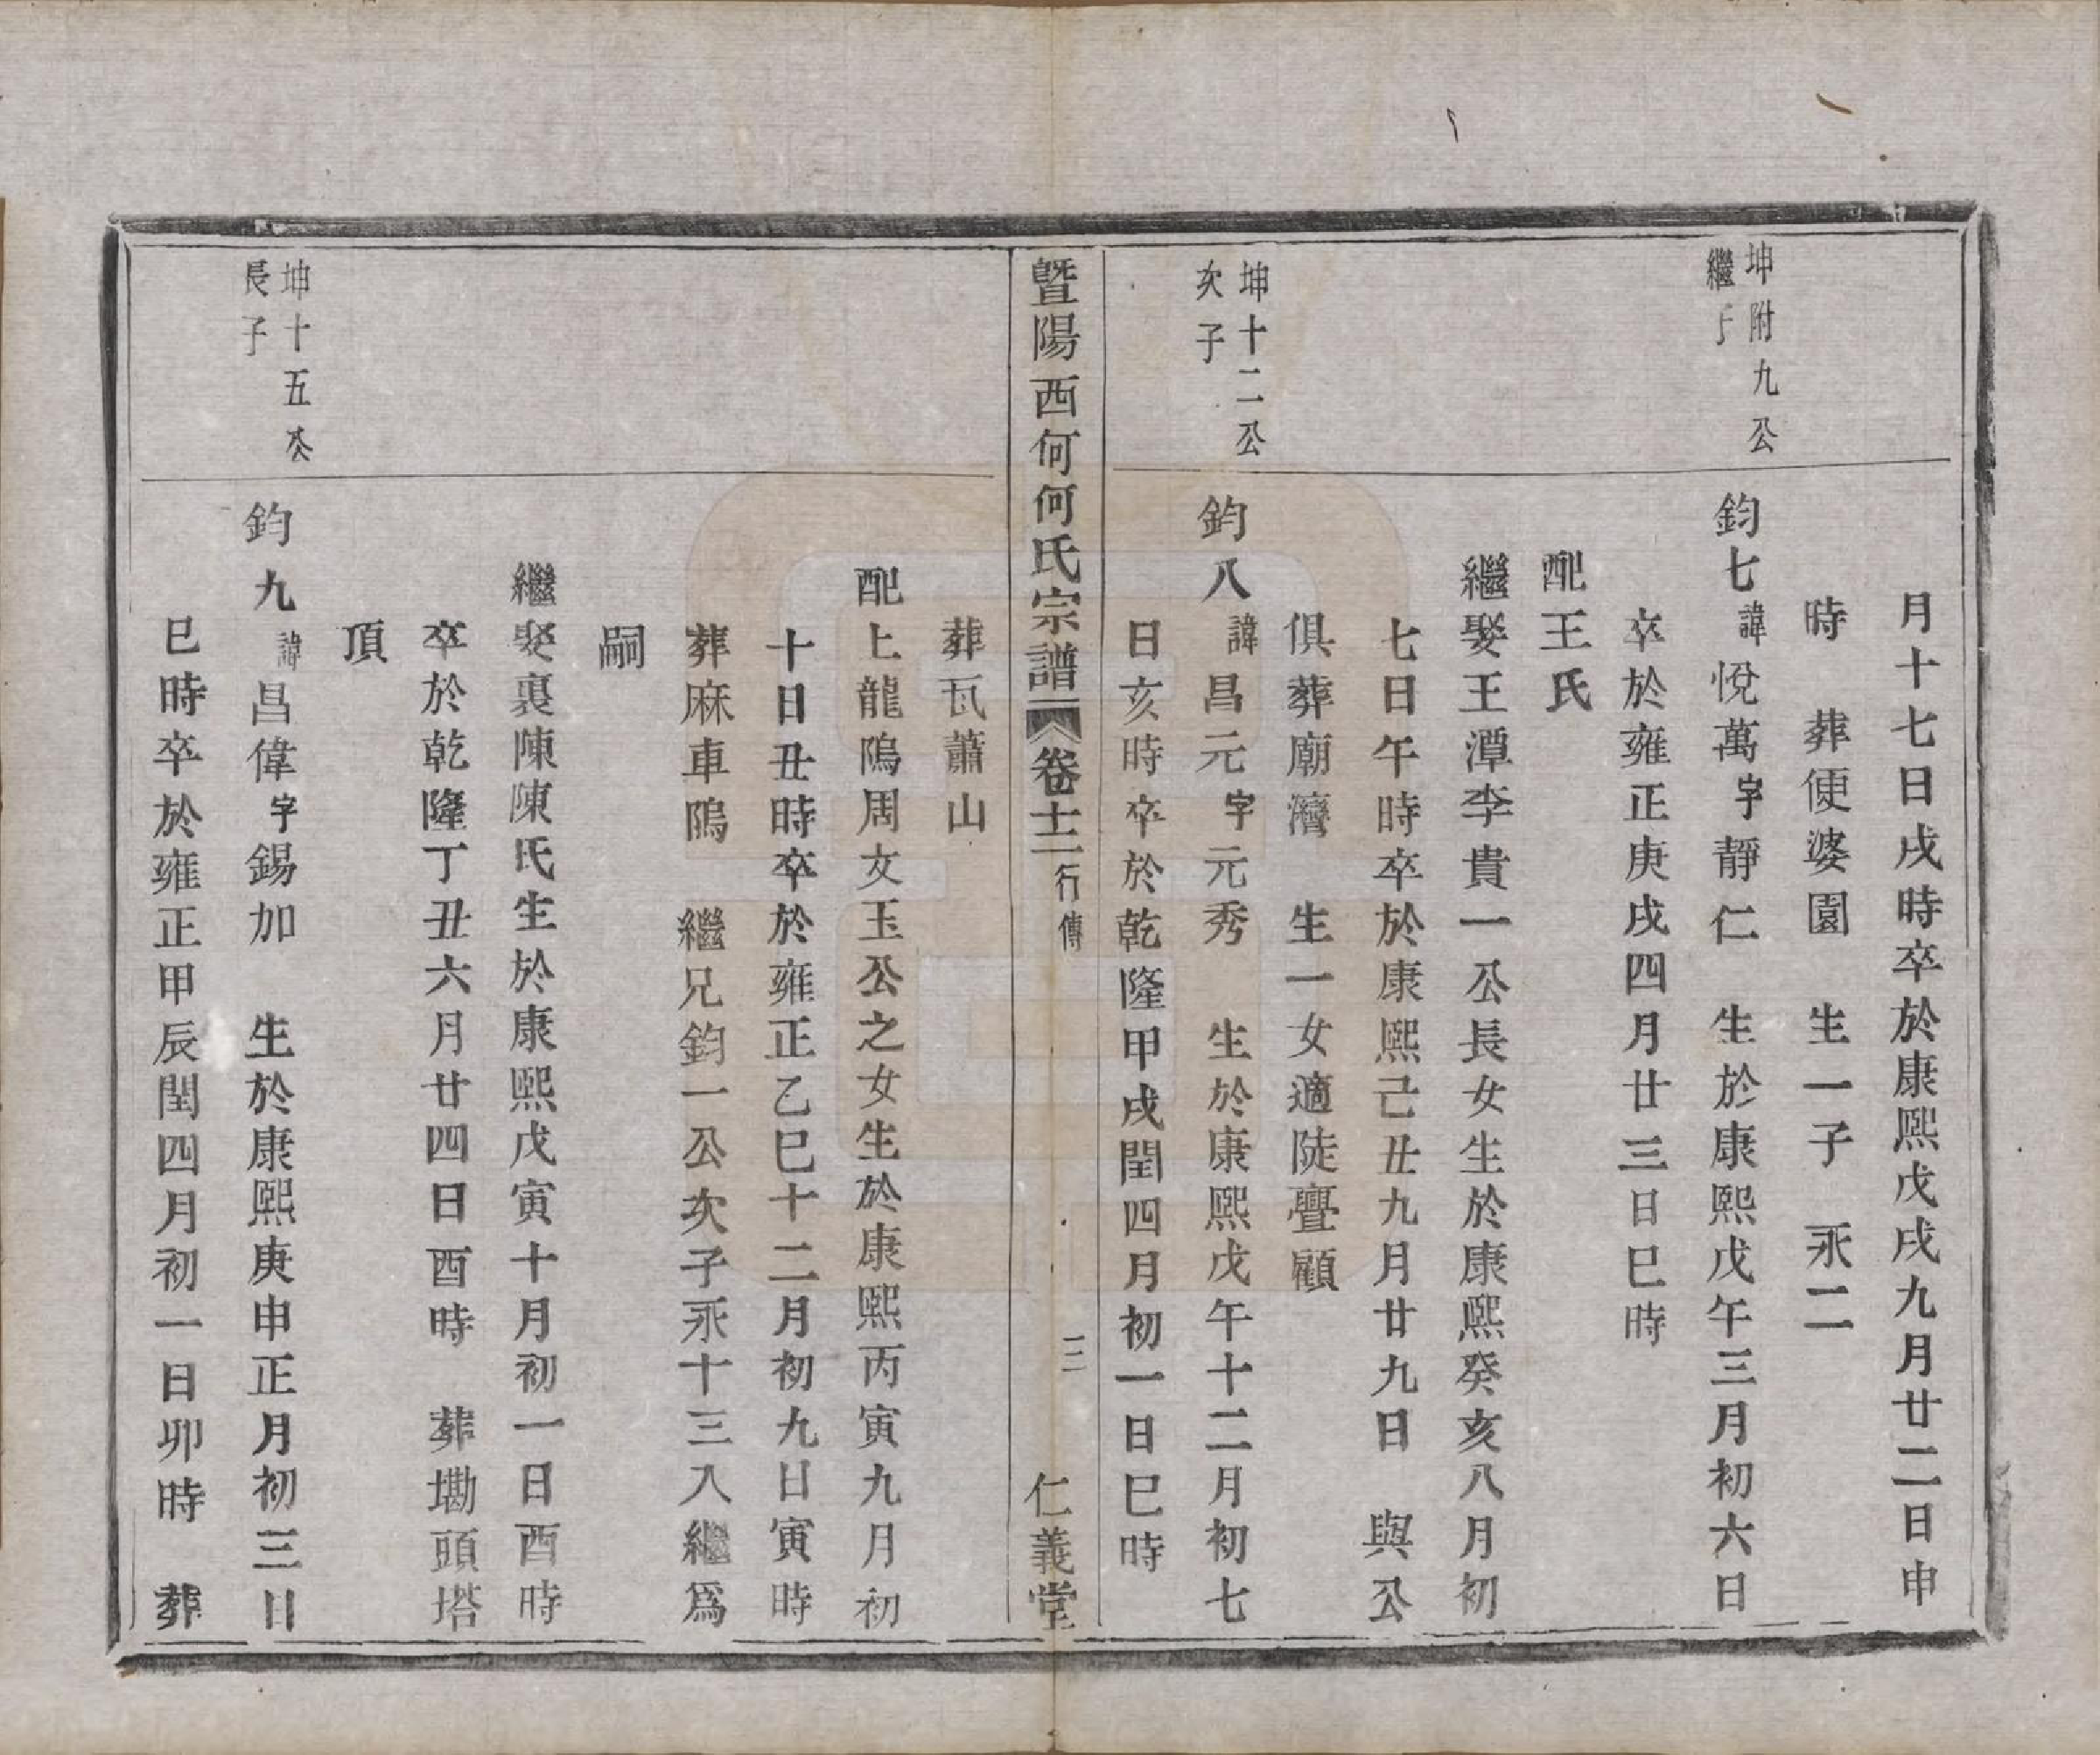 月十七日戌時卒於康熙戊戌九月廿二日申
時　葬便婆園　生一子　永二
坤附九公
繼子
鈞七諱悅萬字靜仁　生於康熙戊午三月初六日
卒於雍正庚戌四月廿三日巳時
配王氏
繼娶王潭李貴一公長女生於康熙癸亥八月初
七日午時卒於康熙己丑九月廿九日　與公
俱葬廟灣　生一女適陡亹顧
坤十二公
次子
鈞八諱昌元字元秀　生於康熙戊午十二月初七
日亥時卒於乾隆甲戌閏四月初一日巳時
暨陽西何何氏宗譜　卷十二　行傳　三　仁義堂
葬瓦蕭山
配上龍隖周文玉公之女生於康熙丙寅九月初
十日丑時卒於雍正乙巳十二月初九日寅時
葬麻車隖　繼兄鈞一公次子永十三入繼爲
嗣
繼娶裏陳陳氏生於康熙戊寅十月初一日酉時
卒於乾隆丁丑六月廿四日酉時　葬墈頭塔
頂
坤十五公
長子
鈞九諱昌偉字錫加　生於康熙庚申正月初三日
巳時卒於雍正甲辰閏四月初一日卯時　葬